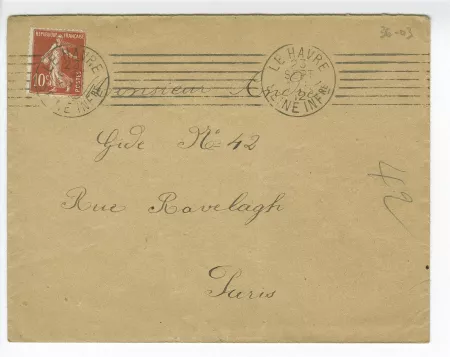 36-03
REPUBLIQUE FRANCAISE
10c POSTES
LE HAVRE
SEINE INFRE
LE HAVRE
23
12
SEINE INFRE
Monsieur
Gide No 42
Rue Ravelagh
Paris
42